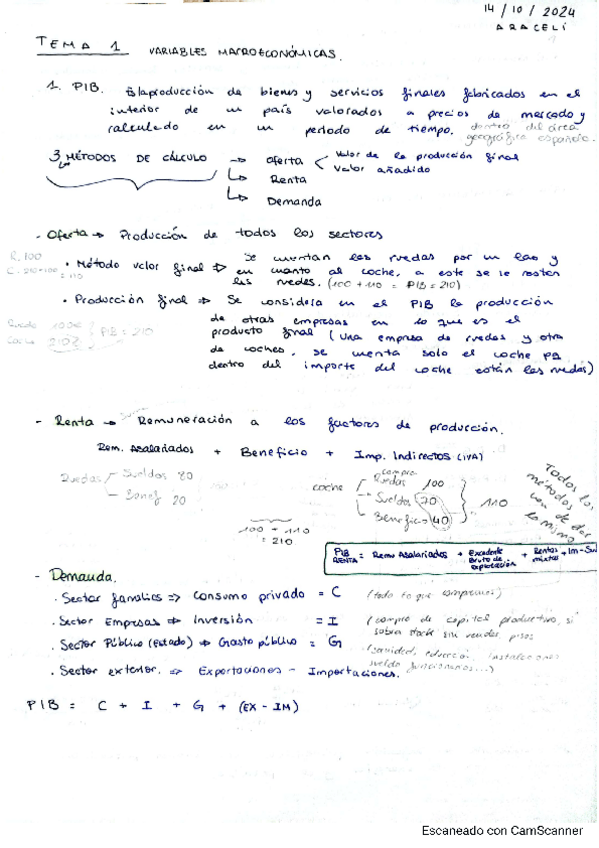 14/10/2024
ARACELI
TEMA 1 VARIABLES MACROECONÓMICAS.
1. PIB. Es la producción de bienes y servicios finales fabricados en el
interior de un país valorados a precios de mercado y
calculado en un periodo de tiempo. dentro del área
geográfica española.
3 MÉTODOS DE CÁLCULO → Oferta < Valor de la producción final
Valor añadido
↳ Renta
↳ Demanda
- Oferta → Producción de todos los sectores
R. 100
C. 210-100 = 110
• Método valor final ⇒ Se cuentan las ruedas por un lao y
en cuanto al coche, a este se le restan
las ruedas. (100 + 110 = PIB = 210)
• Producción final ⇒ Se considera en el PIB la producción
de otras empresas en lo que es el
Rueda 100€
Coche 210€ } PIB = 210
producto final (una empresa de ruedas y otra
de coches, se cuenta solo el coche pq
dentro del importe del coche están las ruedas)
- Renta → Remuneración a los factores de producción.
Rem. Asalariados + Beneficio + Imp. Indirectos (IVA)
Ruedas - Sueldos 80
- Benef 20
coche - compra Ruedas 100
- Sueldos 70
- Beneficio 40
110
100 + 110
= 210
Todos los
métodos
van de dar
lo mismo
PIB RENTA = Remu Asalariados + Excedente Bruto de explotación + Rentas mixtas + Im-Su
- Demanda.
. Sector familias => Consumo privado = C (todo lo que compramos)
. Sector Empresas => Inversión = I (compra de capital productivo, si
sobra stock sin vender, pisos
. Sector Público (Estado) => Gasto público = G
(sanidad, educación, instalaciones
sueldo funcionarios...)
. Sector exterior. => Exportaciones - Importaciones.
PIB = C + I + G + (EX - IM)
Escaneado con CamScanner